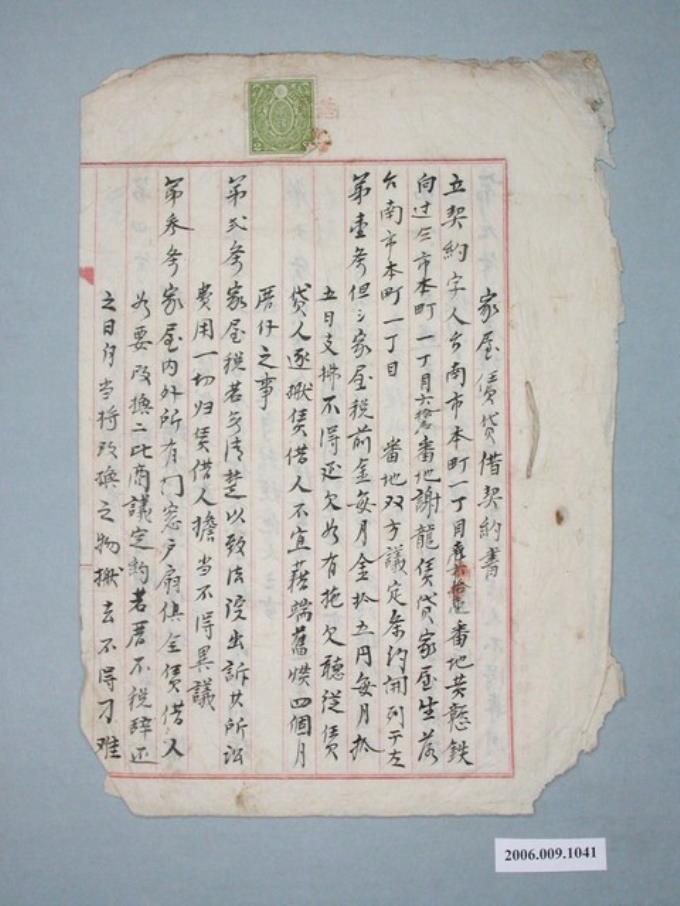 家屋賃貸借契約書
立契約字人台南市本町一丁目番地黄憨鉄
向过仝市本町一丁目六拾番地謝龍賃貸家屋生落
台南市本町一丁目 番地双方議定条約開列于左
第壹条但シ家屋税前金每月金拾五円每月拾
五日支拂不得延欠如有拖欠聴従賃
貸人逐搬賃借人不宜藉端舊悮四個月
厝仔之事
第弍条家屋税若無清楚以致法院出訴其所訟
費用一切归賃借人擔当不得異議
第叁条家屋内外所有门窓户扇俱全賃借人
如要改換二比商議定約若厝不税辞还
之日自当将改換之物搬去不得刁难
2006.009.1041